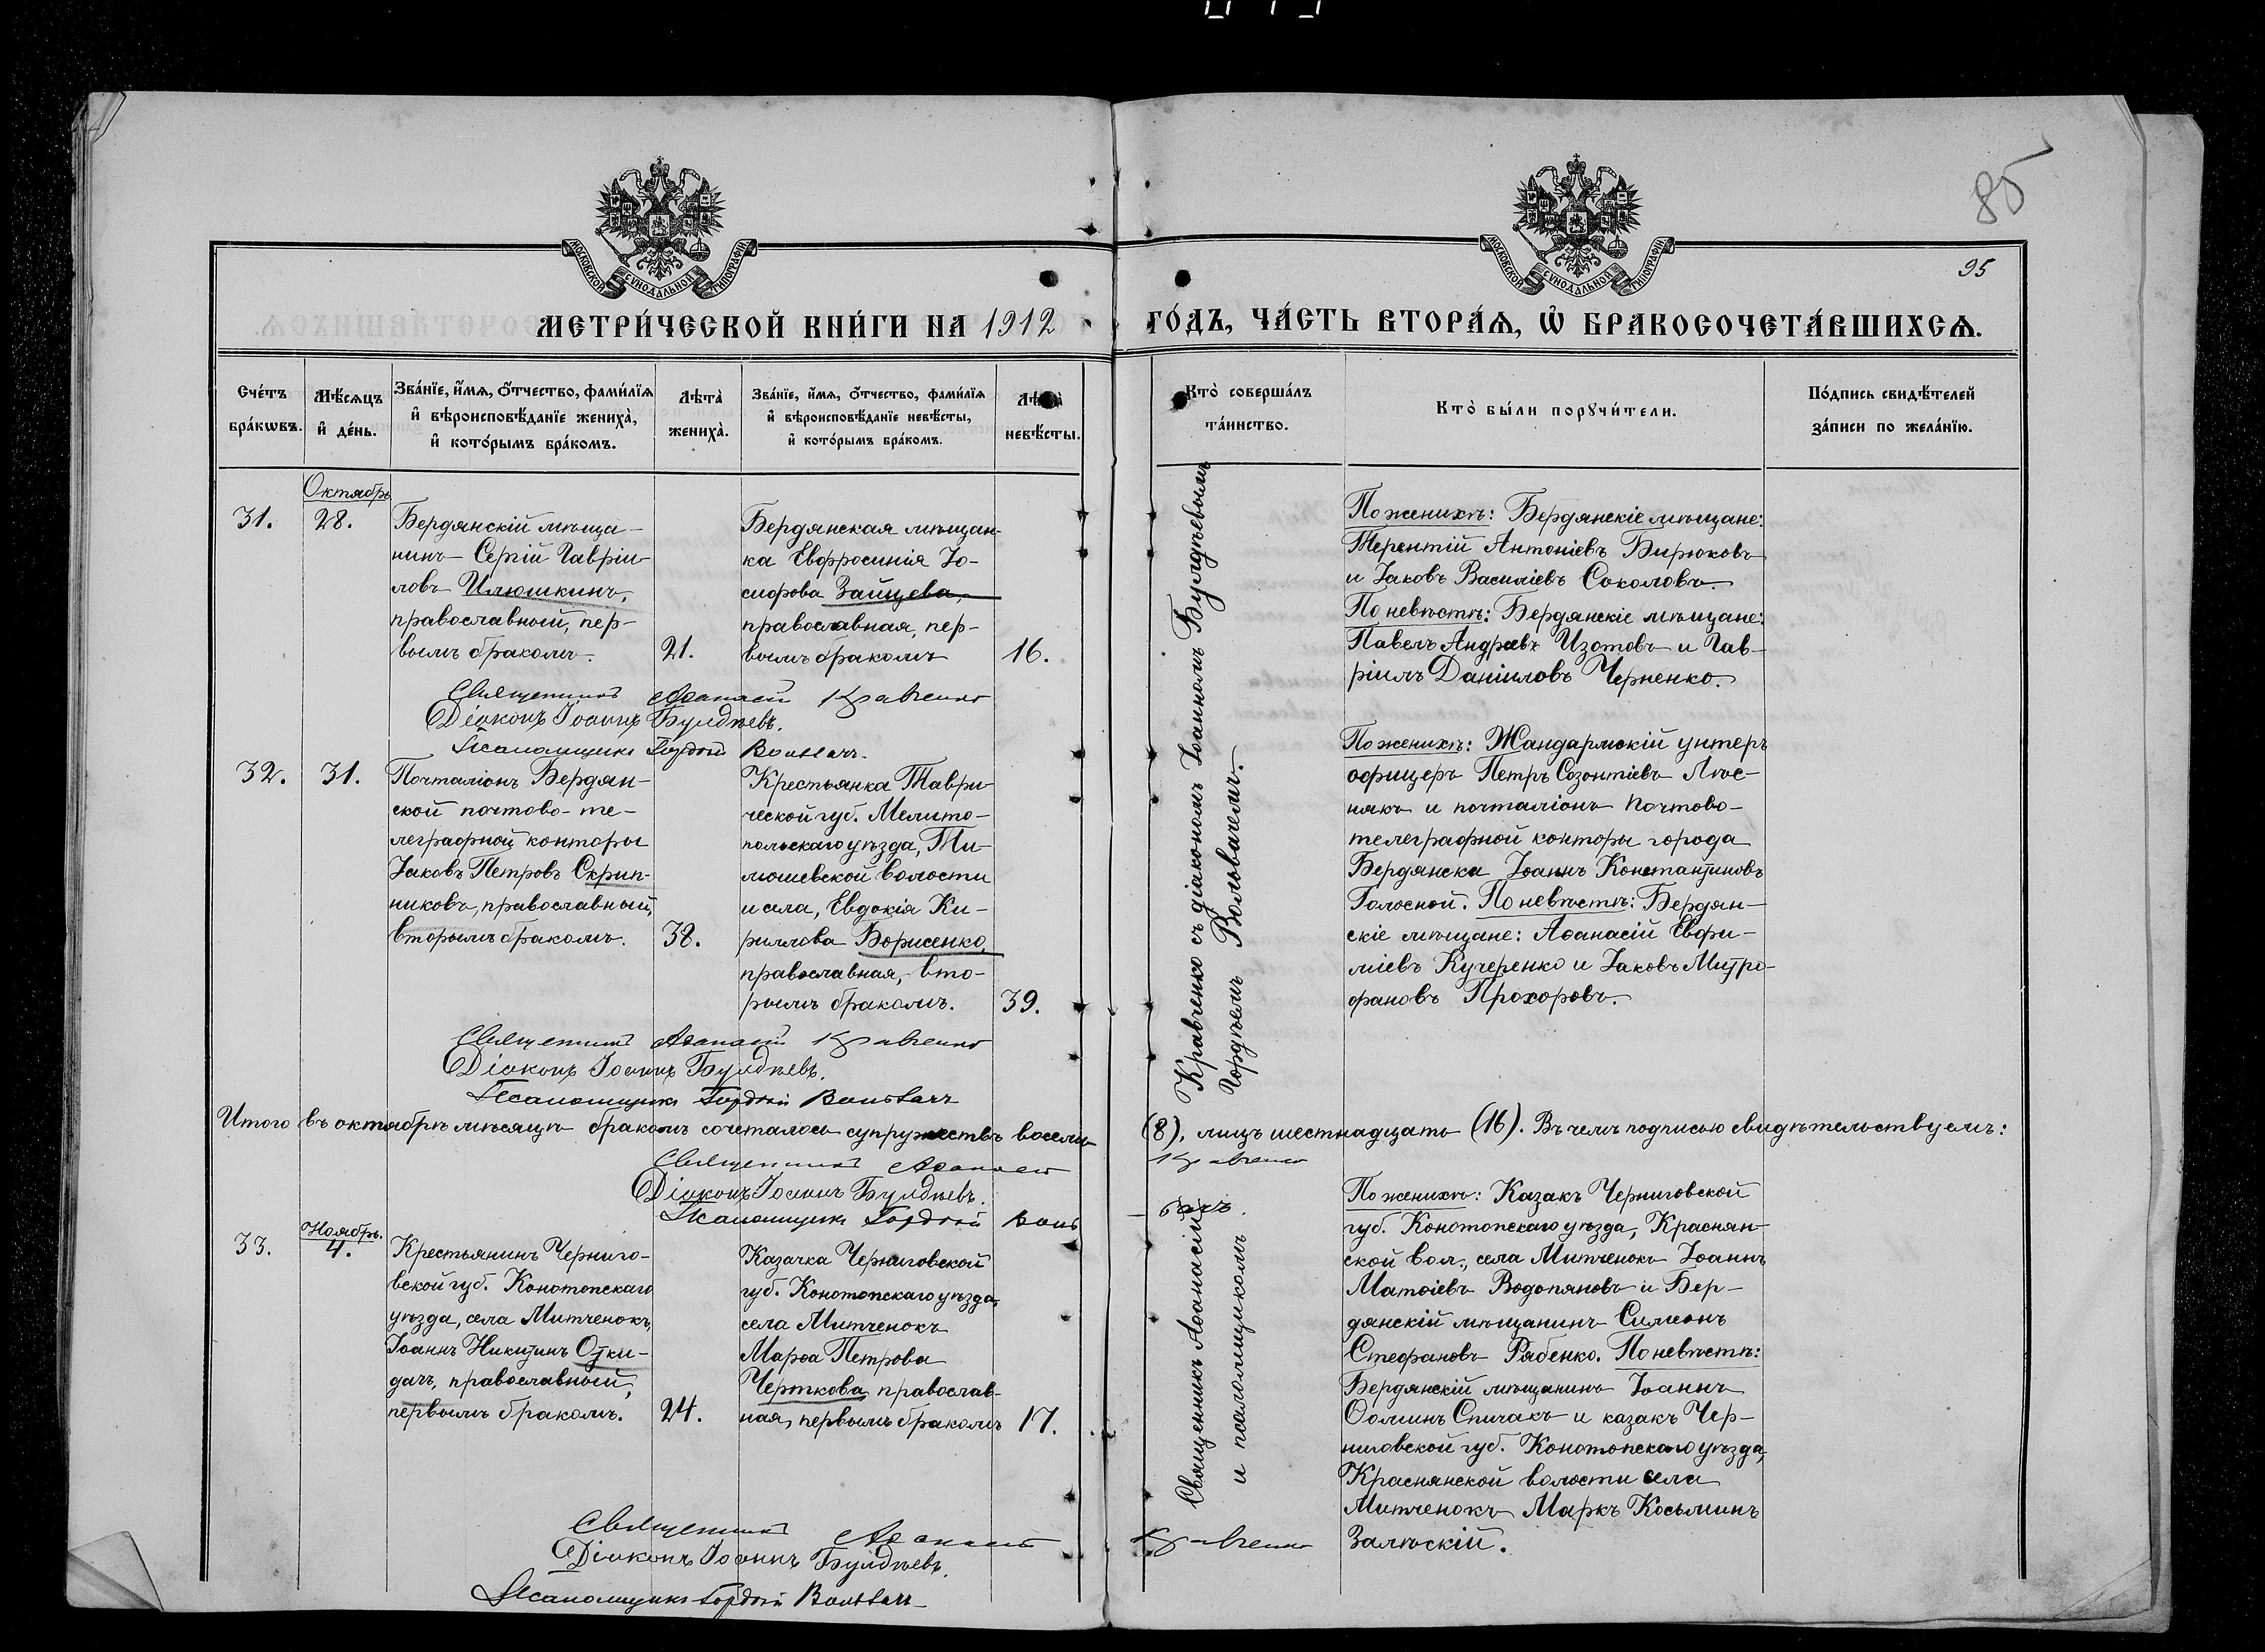 85
95
МОСКОВСКОЙ СѴНОДАЛЬНОЙ ТИПОГРАФІИ
МОСКОВСКОЙ СѴНОДАЛЬНОЙ ТИПОГРАФІИ
МЕТРИ́ЧЕСКОЙ КНИ́ГИ НА 1912
ГО́ДЪ, ЧА́СТЬ ВТОРА́Ѧ, Ѽ БРАКОСОЧЕТА́ВШИХСѦ.
Сче́тъ
бра́кѡвъ.
Мѣ́сѧцъ
и҆ де́нь.
Зва́нїе, и҆́мѧ, ѻ҆́тчество, фами́лїѧ
и҆ вѣроисповѣ́данїе жениха̀,
и҆ кото́рымъ бра́комъ.
Лѣта̀
жениха̀.
Зва́нїе, и҆́мѧ, ѻ҆́тчество, фами́лїѧ
и҆ вѣроисповѣ́данїе невѣ́сты,
и҆ кото́рымъ бра́комъ.
Лѣта̀
невѣ́сты.
Кто̀ соверша́лъ
та́инство.
Кто̀ бы́ли порꙋчи́тели.
По́дпись свидѣ́телей
за́писи по жела́нїю.
Октябрь
31.
28.
Бердянскій мѣща-
нинъ Сергій Гавріи-
ловъ Илюшкинъ,
православный, пер-
вымъ бракомъ.
21.
Бердянская мѣщан-
ка Евфросинія Іо-
сифова Зайцева,
православная, пер-
вымъ бракомъ
16.
По женихѣ: Бердянскіе мѣщане:
Терентій Антоніевъ Бирюковъ
и Іаковъ Василіевъ Соколовъ.
По невѣстѣ: Бердянскіе мѣщане:
Павелъ Андреевъ Изотовъ и Гав-
ріилъ Даніиловъ Черненко.
Священникъ Аѳанасій Кравченко
Діаконъ Іоаннъ Булдѣевъ.
Псаломщикъ Гордѣй Воловачъ.
32.
31.
Почталіонъ Бердян-
ской почтово-те-
леграфной конторы
Іаковъ Петровъ Скрип-
никовъ, православный,
вторымъ бракомъ.
38.
Крестьянка Таври-
ческой губ. Мелито-
польскаго уѣзда, Ти-
мошевской волости
и села, Евдокія Ки-
риллова Борисенко,
православная, вто-
рымъ бракомъ.
39.
По женихѣ: Жандармскій унтеръ
офицеръ Петръ Созонтіевъ Лѣс-
някъ и почталіонъ почтово-
телеграфной конторы города
Бердянска Іоаннъ Константиновъ
Голосной. По невѣстѣ: Бердян-
скіе мѣщане: Аѳанасій Евфи-
міевъ Кучеренко и Іаковъ Митро-
фановъ Прохоровъ.
Священникъ Аѳанасій Кравченко
Діаконъ Іоаннъ Булдѣевъ.
Псаломщикъ Гордѣй Воловачъ
Итого въ октябрѣ мѣсяцѣ бракомъ сочеталось супружествъ восемь (8), лицъ шестнадцать (16). Въ чемъ подписью свидѣтельствуемъ:
Священникъ Аѳанасій Кравченко
Діаконъ Іоаннъ Булдѣевъ.
Псаломщикъ Гордѣй Воловачъ.
Ноябрь.
33.
4.
Крестьянинъ Черниго-
вской губ. Конотопскаго
уѣзда, села Митченокъ,
Іоаннъ Никитинъ Отки-
дачъ, православный,
первымъ бракомъ.
24.
Казачка Черниговской
губ. Конотопскаго уѣзда,
села Митченокъ
Марѳа Петрова
Черткова православ-
ная, первымъ бракомъ
17.
Священникъ Аѳанасій Кравченко съ діакономъ Іоанномъ Булдѣевымъ
и псаломщикомъ Гордѣемъ Воловачемъ.
По женихѣ: Казакъ Черниговской
губ. Конотопскаго уѣзда, Краснян-
ской вол., села Митченокъ Іоаннъ
Матѳіевъ Водопяновъ и Бер-
дянскій мѣщанинъ Симеонъ
Стефановъ Рябенко. По невѣстѣ:
Бердянскій мѣщанинъ Іоаннъ
Ѳоминъ Спичакъ и казакъ Чер-
ниговской губ. Конотопскаго уѣзда,
Краснянской волости села
Митченокъ Маркъ Косьминъ
Залѣскій.
Священникъ Аѳанасій Кравченко
Діаконъ Іоаннъ Булдѣевъ.
Псаломщикъ Гордѣй Воловачъ